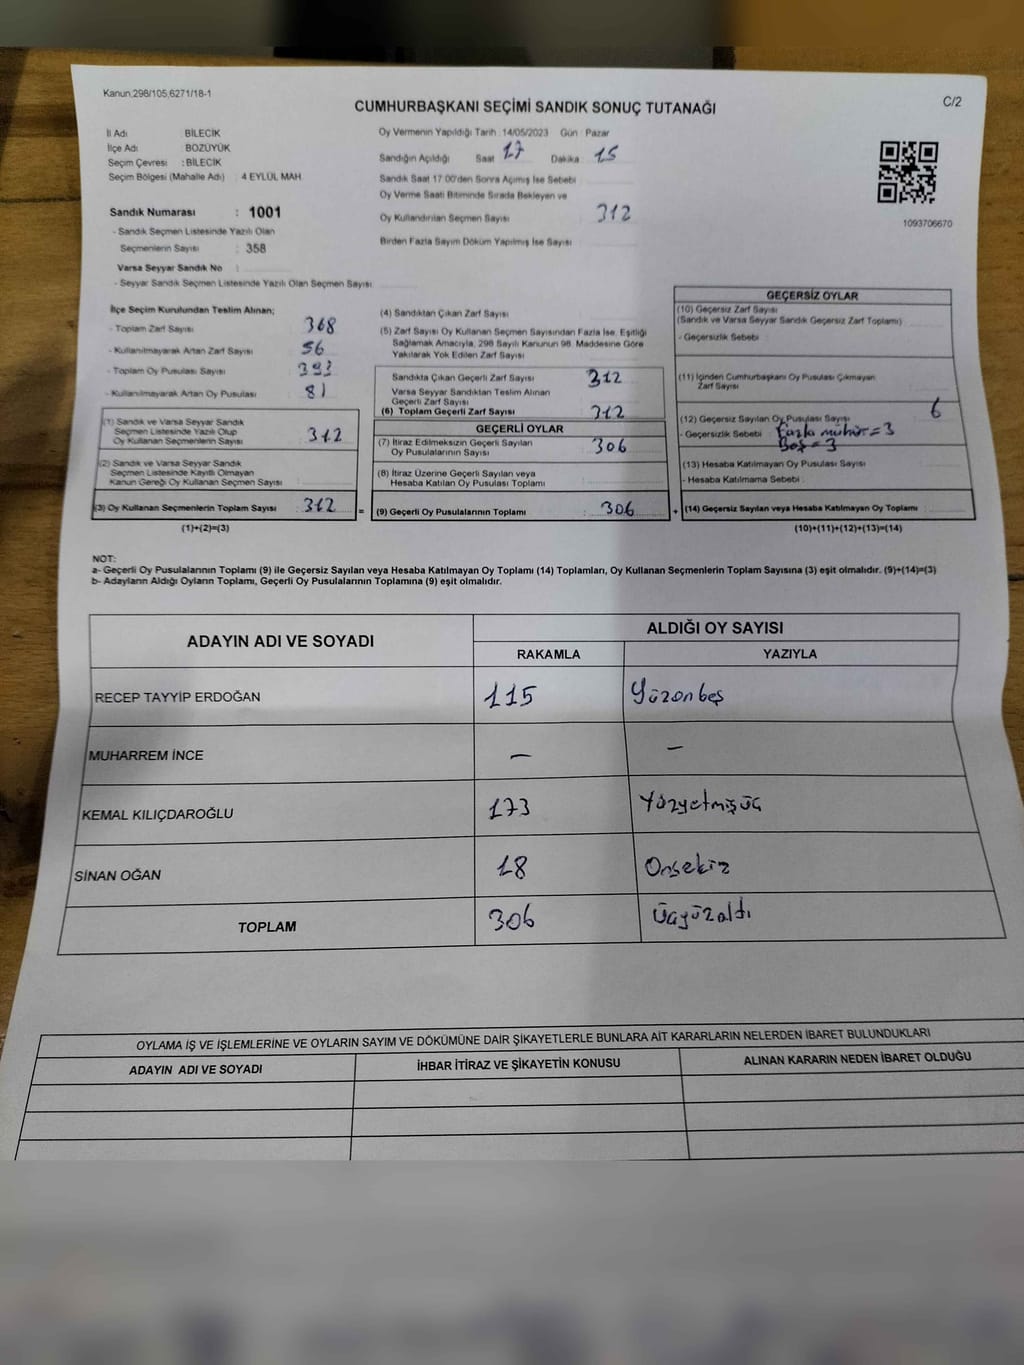 Kanun,298/105,6271/18-1
C/2
CUMHURBAŞKANI SEÇİMİ SANDIK SONUÇ TUTANAĞI
İl Adı BİLECİK
İlçe Adı BOZÜYÜK
Seçim Çevresi : BİLECİK
Seçim Bölgesi (Mahalle Adı) : 4 EYLÜL MAH.
Sandık Numarası : 1001
- Sandık Seçmen Listesinde Yazılı Olan
Seçmenlerin Sayısı : 358
Varsa Seyyar Sandık No :
- Seyyar Sandık Seçmen Listesinde Yazılı Olan Seçmen Sayısı:
Oy Vermenin Yapıldığı Tarih : 14/05/2023 Gün : Pazar
Sandığın Açıldığı Saat 17 Dakika 15
Sandık Saat 17:00'den Sonra Açımış İse Sebebi
Oy Verme Saati Bitiminde Sırada Bekleyen ve
Oy Kullandırılan Seçmen Sayısı 312
Birden Fazla Sayım Döküm Yapılmış İse Sayısı :
1093706670
İlçe Seçim Kurulundan Teslim Alınan;
- Toplam Zarf Sayısı 368
- Kullanılmayarak Artan Zarf Sayısı 56
- Toplam Oy Pusulası Sayısı : 393
- Kullanılmayarak Artan Oy Pusulası : 81
(1) Sandık ve Varsa Seyyar Sandık
Seçmen Listesinde Yazılı Olup
Oy Kullanan Seçmenlerin Sayısı : 312
(2) Sandık ve Varsa Seyyar Sandık
Seçmen Listesinde Kayıtlı Olmayan
Kanun Gereği Oy Kullanan Seçmen Sayısı :
(3) Oy Kullanan Seçmenlerin Toplam Sayısı : 312 =
(1)+(2)=(3)
(4) Sandıktan Çıkan Zarf Sayısı :
(5) Zarf Sayısı Oy Kullanan Seçmen Sayısından Fazla İse, Eşitliği
Sağlamak Amacıyla, 298 Sayılı Kanunun 98. Maddesine Göre
Yakılarak Yok Edilen Zarf Sayısı :
Sandıkta Çıkan Geçerli Zarf Sayısı : 312
Varsa Seyyar Sandıktan Teslim Alınan
Geçerli Zarf Sayısı
(6) Toplam Geçerli Zarf Sayısı : 312
GEÇERLİ OYLAR
(7) İtiraz Edilmeksizin Geçerli Sayılan
Oy Pusulalarının Sayısı : 306
(8) İtiraz Üzerine Geçerli Sayılan veya
Hesaba Katılan Oy Pusulası Toplamı :
(9) Geçerli Oy Pusulalarının Toplamı : 306 +
GEÇERSİZ OYLAR
(10) Geçersiz Zarf Sayısı
(Sandık ve Varsa Seyyar Sandık Geçersiz Zarf Toplamı) :
- Geçersizlik Sebebi :
(11) İçinden Cumhurbaşkanı Oy Pusulası Çıkmayan
Zarf Sayısı :
(12) Geçersiz Sayılan Oy Pusulası Sayısı 6
- Geçersizlik Sebebi : Fazla mühür = 3
Boş = 3
(13) Hesaba Katılmayan Oy Pusulası Sayısı
- Hesaba Katılmama Sebebi :
(14) Geçersiz Sayılan veya Hesaba Katılmayan Oy Toplamı :
(10)+(11)+(12)+(13)=(14)
NOT:
a- Geçerli Oy Pusulalarının Toplamı (9) ile Geçersiz Sayılan veya Hesaba Katılmayan Oy Toplamı (14) Toplamları, Oy Kullanan Seçmenlerin Toplam Sayısına (3) eşit olmalıdır. (9)+(14)=(3)
b- Adayların Aldığı Oyların Toplamı, Geçerli Oy Pusulalarının Toplamına (9) eşit olmalıdır.
ADAYIN ADI VE SOYADI ALDIĞI OY SAYISI
RAKAMLA YAZIYLA
RECEP TAYYİP ERDOĞAN 115 Yüzonbeş
MUHARREM İNCE — —
KEMAL KILIÇDAROĞLU 173 Yüzyetmişüç
SİNAN OĞAN 18 Onsekiz
TOPLAM 306 Üçyüzaltı
OYLAMA İŞ VE İŞLEMLERİNE VE OYLARIN SAYIM VE DÖKÜMÜNE DAİR ŞİKAYETLERLE BUNLARA AİT KARARLARIN NELERDEN İBARET BULUNDUKLARI
ADAYIN ADI VE SOYADI İHBAR İTİRAZ VE ŞİKAYETİN KONUSU ALINAN KARARIN NEDEN İBARET OLDUĞU